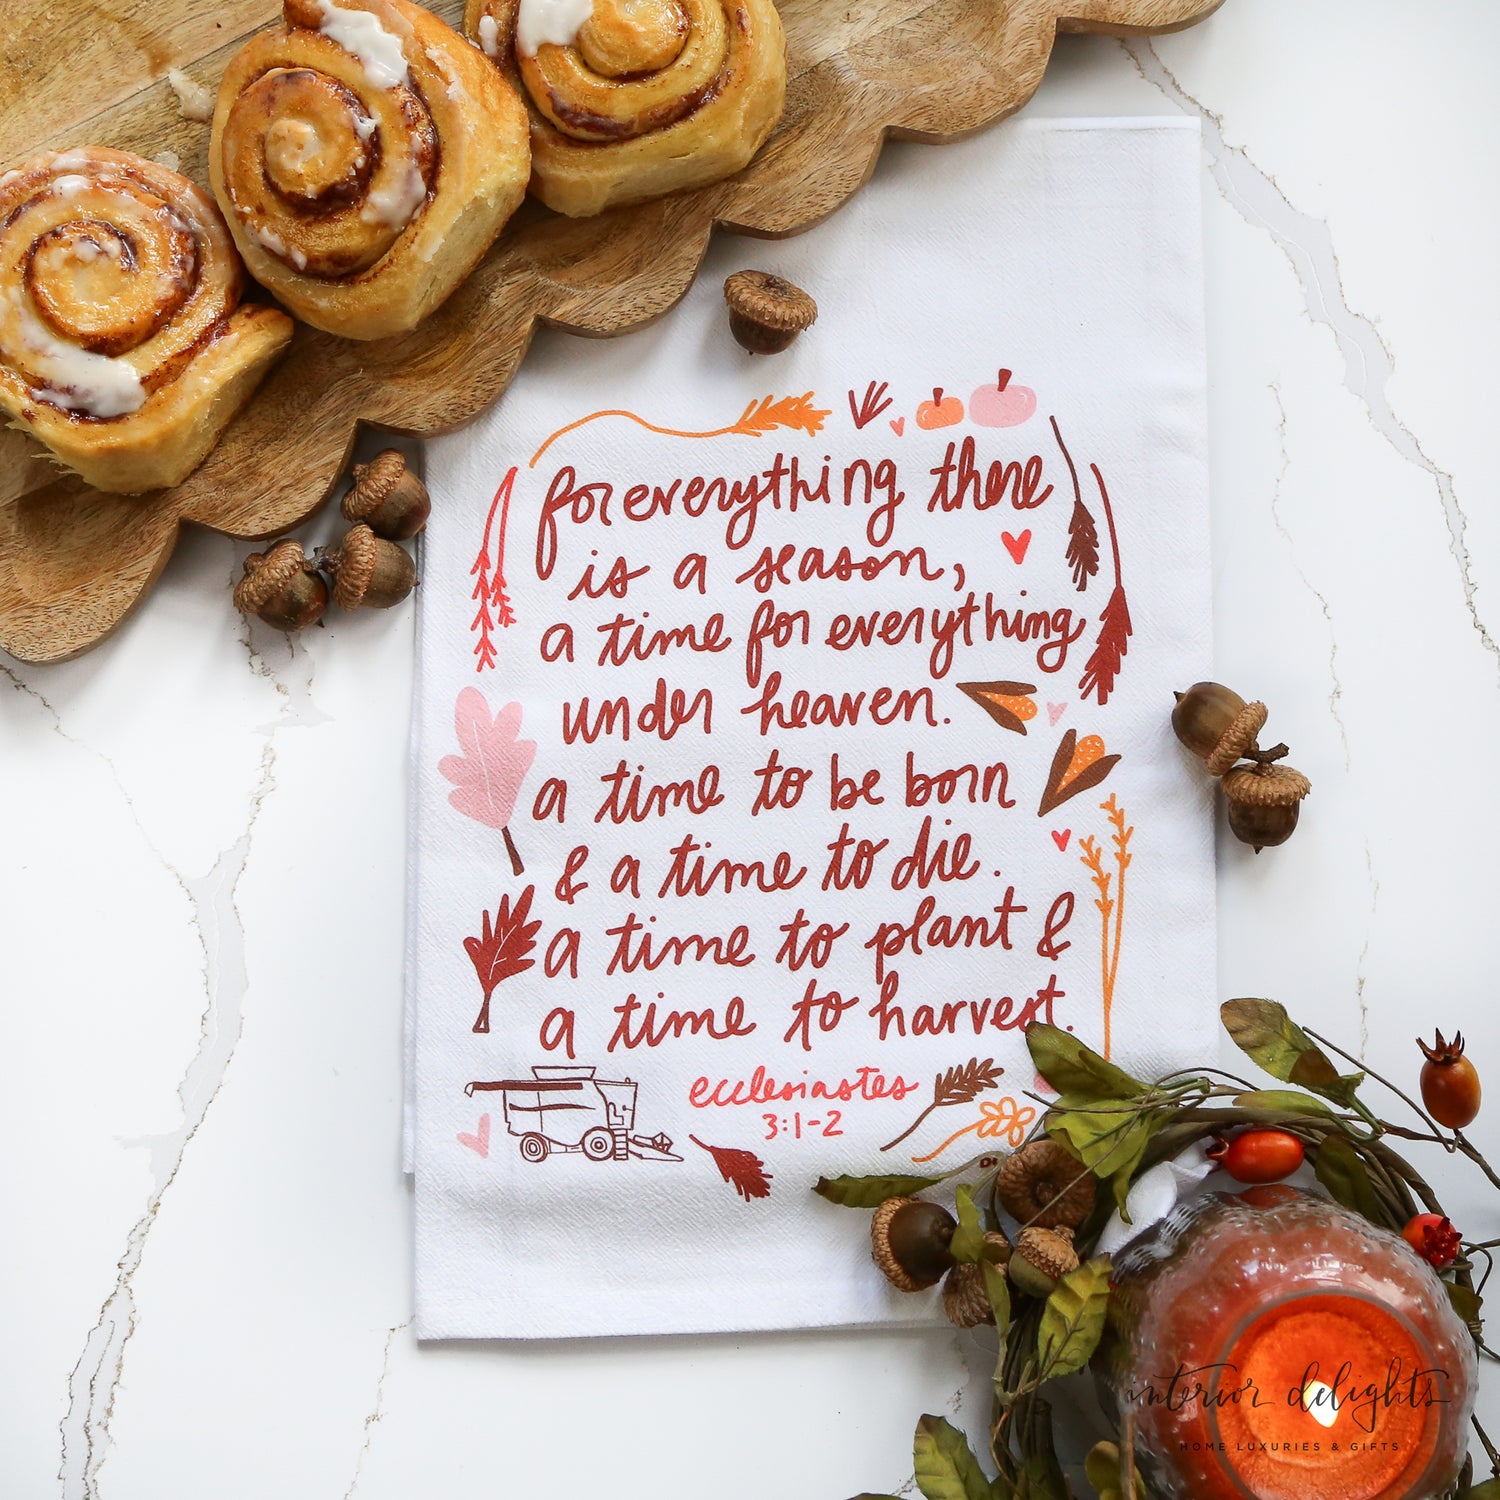 for everything there
is a season,
a time for everything
under heaven.
a time to be born
& a time to die.
a time to plant &
a time to harvest.
ecclesiastes
3:1-2
interior delights
HOME LUXURIES & GIFTS